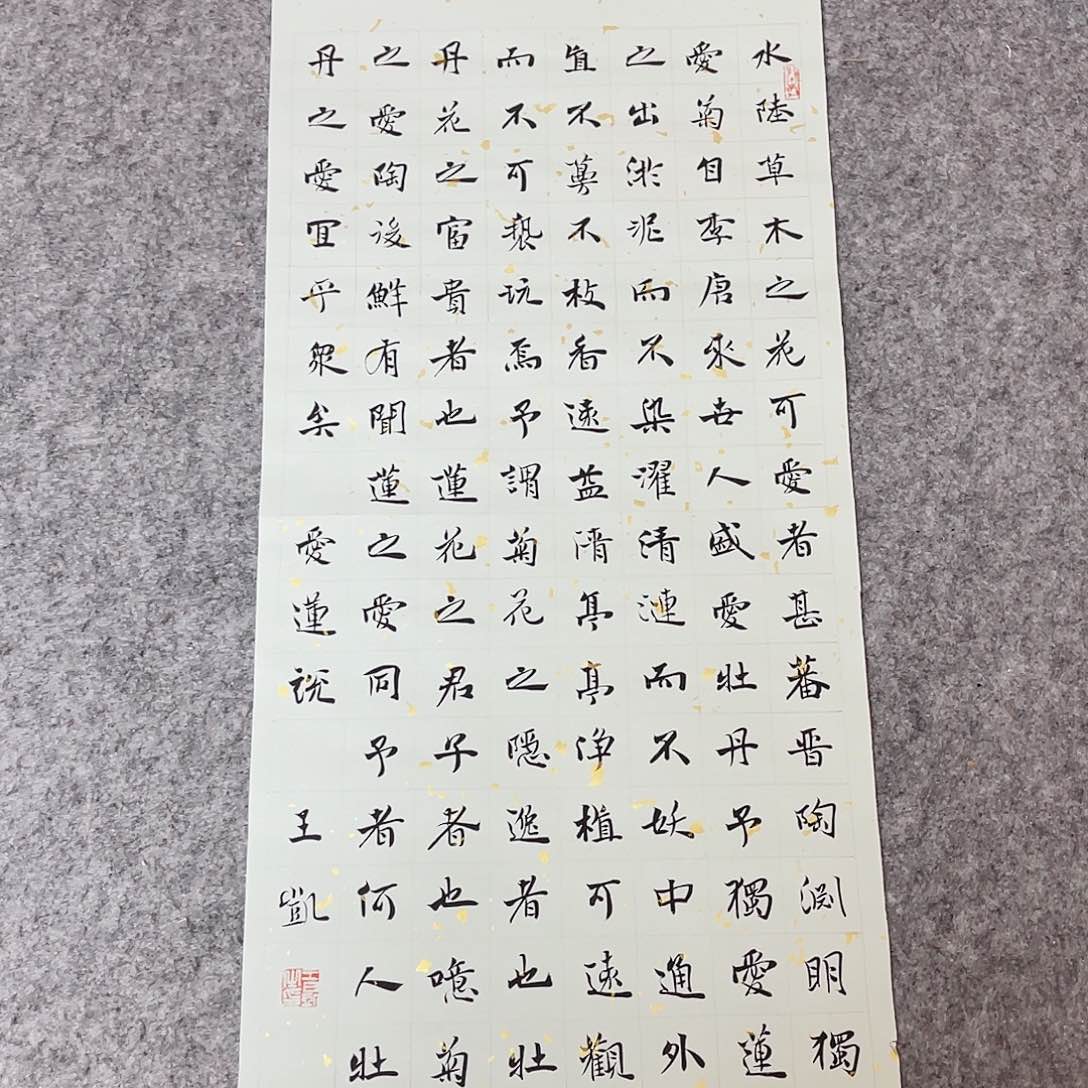 水陸草木之花可愛者甚蕃晋陶淵明獨
愛菊自李唐來世人盛愛牡丹予獨愛蓮
之出淤泥而不染濯清漣而不妖中通外
直不蔓不枝香遠益清亭亭淨植可遠觀
而不可褻玩焉予謂菊花之隱逸者也牡
丹花之富貴者也蓮花之君子者也噫菊
之愛陶後鮮有聞蓮之愛同予者何人牡
丹之愛宜乎眾矣 愛蓮說 王凱